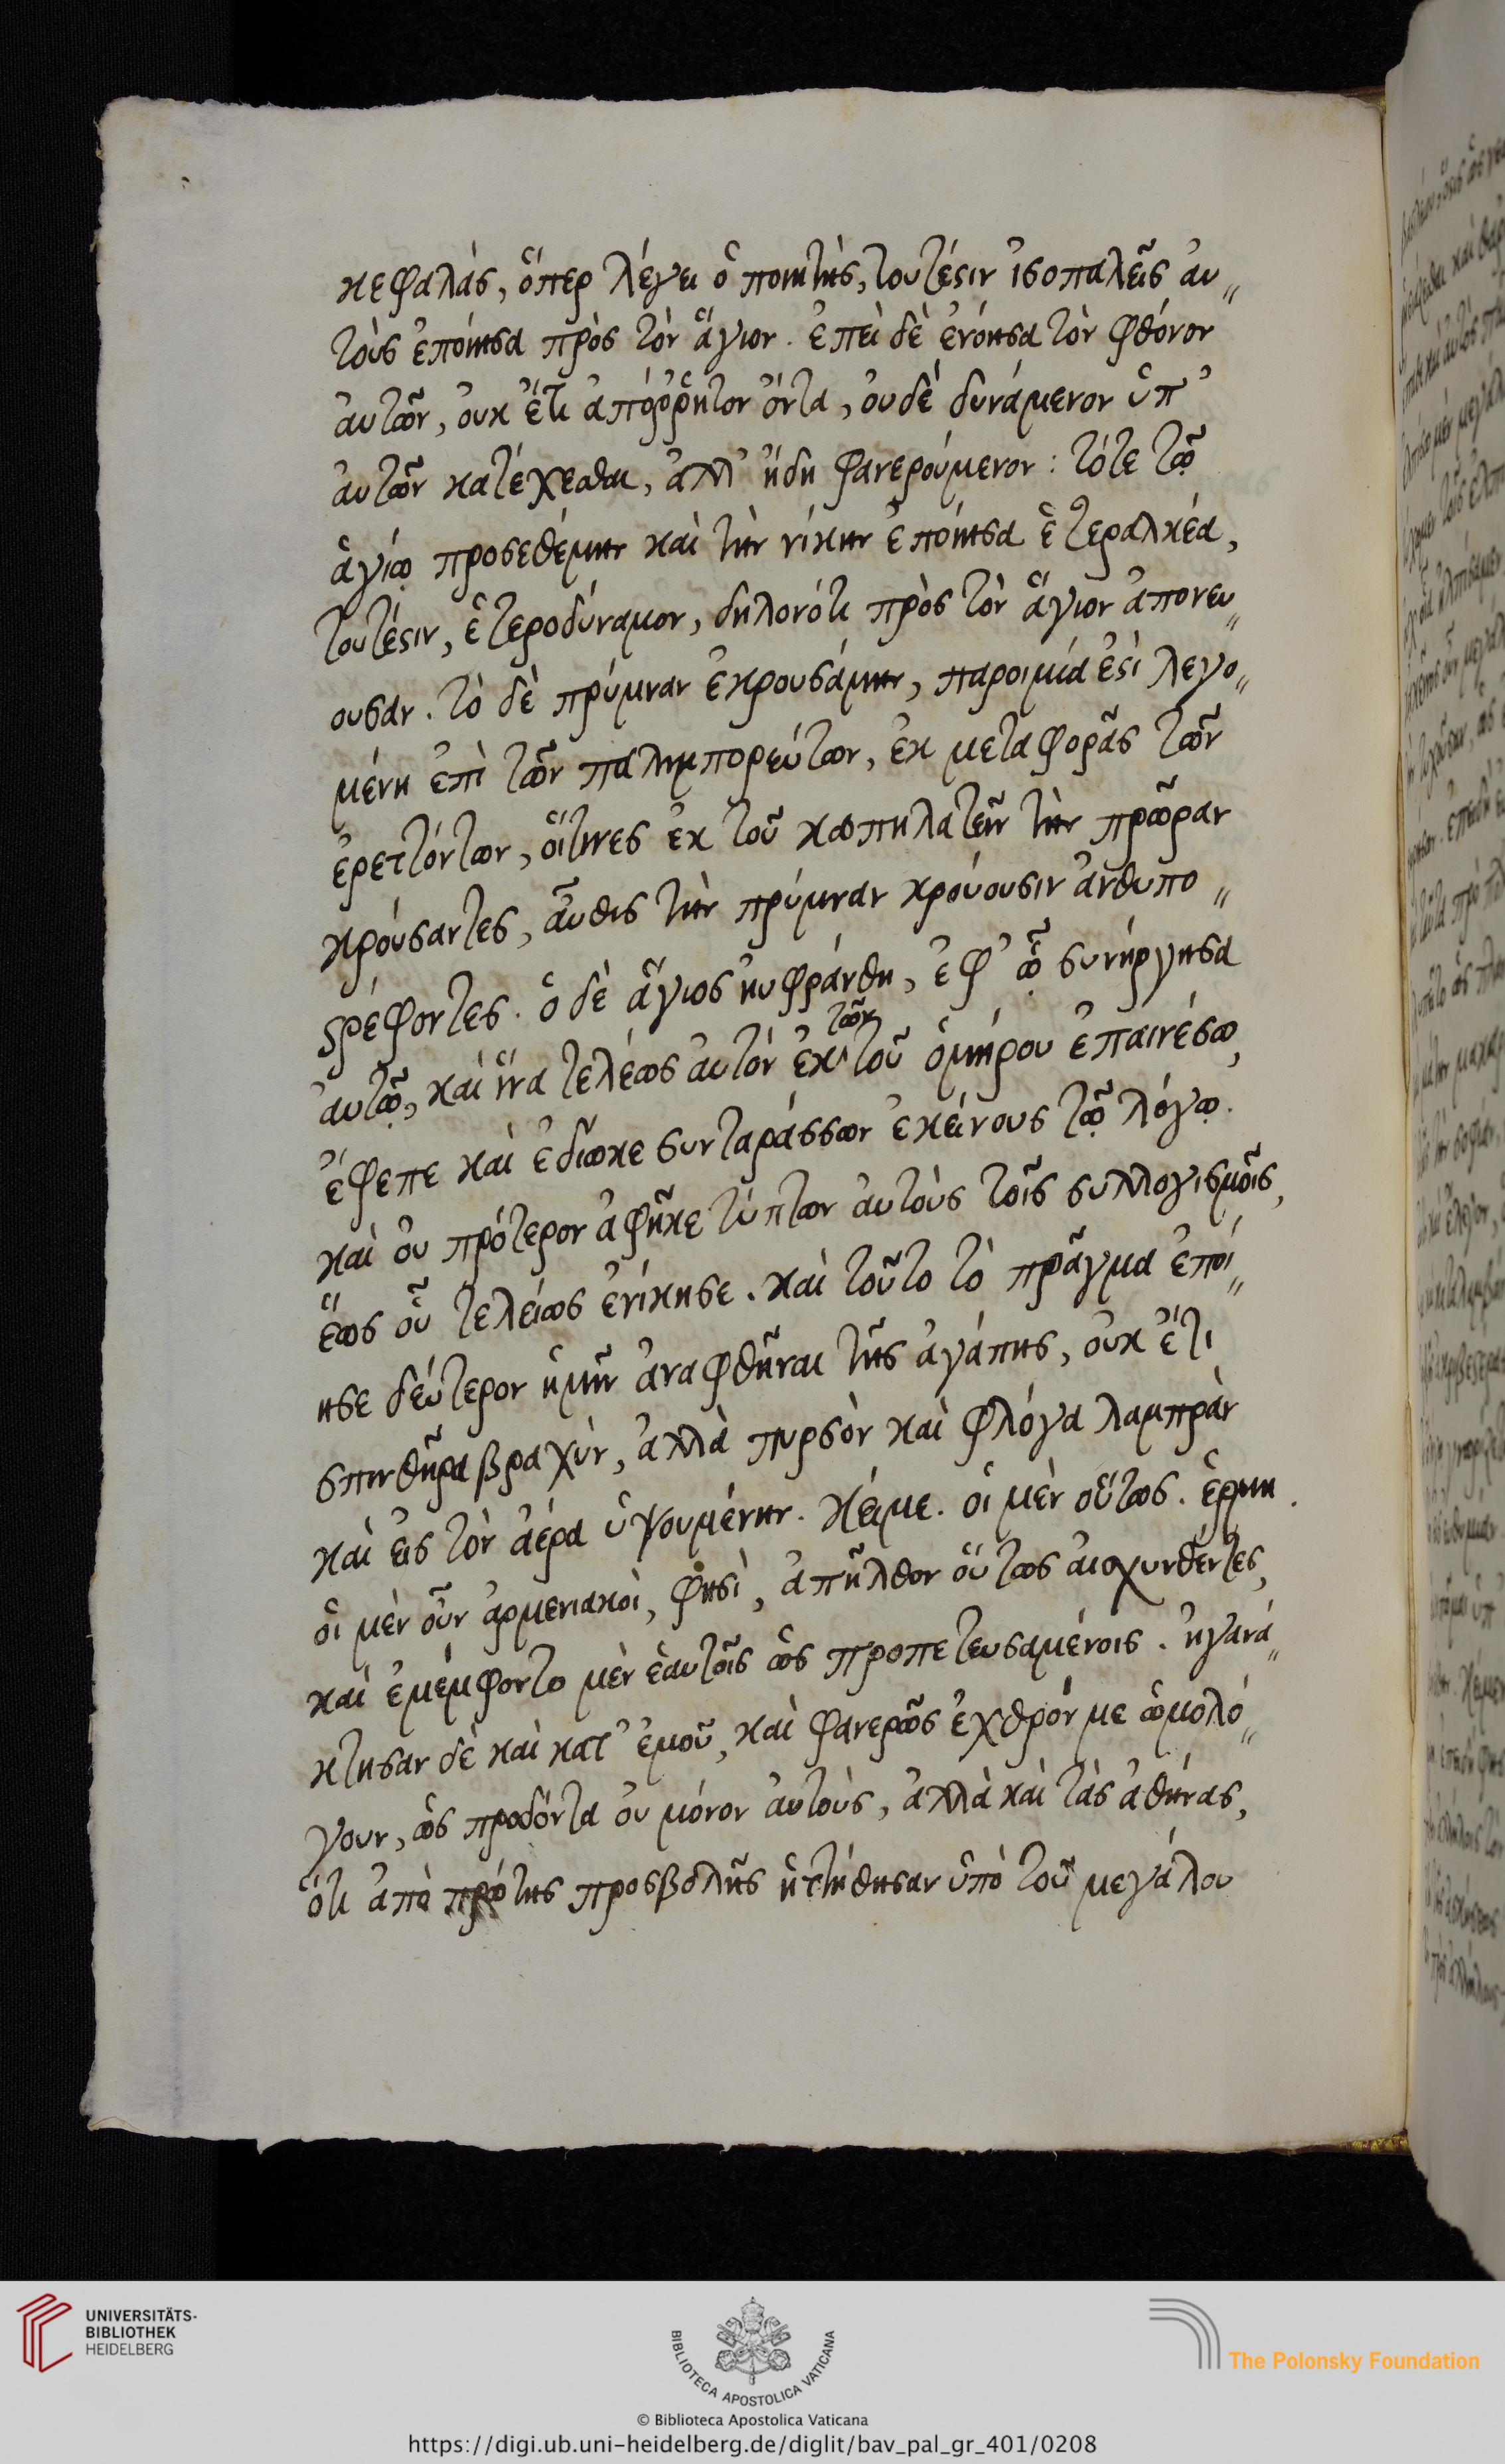 κεφαλὰς, ὅπερ λέγει ὁ ποιητὴς, τουτέστιν ἰσοπαλεῖς αυ„
τοὺς ἐποίησα πρὸς τὸν ἅγιον. ἐπεὶ δὲ ἐνόησα τὸν φθόνον
αὐτῶν, οὐκ ἔτι ἀπόῤῥητον ὄντα, οὐδὲ δυνάμενον ὑπ'
αὐτῶν κατέχεσθαι, ἀλλ' ἤδη φανερούμενον: τότε τῷ
ἁγίῳ προσεθέμην καὶ τὴν νίκην ἐποίησα ἑτεραλκέα,
τουτέστιν, ἑτεροδύναμον, δηλονότι πρὸς τὸν ἅγιον ἀπονευ„
ουσαν. τὸ δὲ πρύμναν ἐκρουσάμην, παροιμία ἐστὶ λεγο„
μένη ἐπὶ τῶν παλιμπορεύτων, ἐκ μεταφορᾶς τῶν
ἐρεττόντων, οἵτινες ἐκ τοῦ κωπηλατεῖν τὴν πρῶραν
κρούσαντες, αὖθις τὴν πρύμναν κρούουσιν ἀνθυπο„
στρέφοντες. ὁ δὲ ἅγιος ηὐφράνθη, ἐφ' ᾧ συνήργησα
αὐτῷ, καὶ ἵνα τελέως αὐτὸν ἐκ τῶν τοῦ ὁμήρου ἐπαινέσω,
ἔφεπε καὶ ἐδίωκε συνταράσσων ἐκείνους τῷ λόγῳ.
καὶ οὐ πρότερον ἀφῆκε τύπτων αὐτοὺς τοῖς συλλογισμοῖς,
ἕως οὗ τελείως ἐνίκησε. καὶ τοῦτο τὸ πρᾶγμα ἐποί„
ησε δεύτερον ἡμῖν ἀναφθῆναι τῆς ἀγάπης, οὐκ ἔτι
σπινθῆρα βραχὺν, ἀλλὰ πυρσὸν καὶ φλόγα λαμπρὰν
καὶ εἰς τὸν ἀέρα ὑψουμένην. Κείμε. οἱ μὲν οὕτως. ἑρμη.
οἱ μὲν οὖν ἀρμενιακοὶ, φησὶ, ἀπῆλθον οὕτως αἰσχυνθέντες,
καὶ ἐμέμφοντο μὲν ἑαυτοῖς ὡς προπετευσαμένοις. ἠγανά„
κτησαν δὲ καὶ κατ' ἐμοῦ, καὶ φανερῶς ἐχθρόν με ὡμολό„
γουν, ὡς προδόντα οὐ μόνον αὐτοὺς, ἀλλὰ καὶ τὰς ἀθήνας,
ὅτι ἀπὸ πρώτης προσβολῆς ἡττήθησαν ὑπὸ τοῦ μεγάλου
UNIVERSITÄTS-
BIBLIOTHEK
HEIDELBERG
BIBLIOTECA APOSTOLICA VATICANA
The Polonsky Foundation
© Biblioteca Apostolica Vaticana
https://digi.ub.uni-heidelberg.de/diglit/bav_pal_gr_401/0208